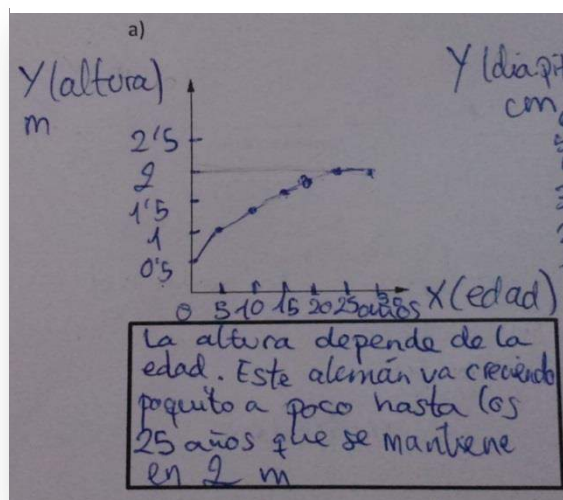 a)
Y (altura)
m
Y (dia.pi
cm
2'5
2
1'5
1
0'5
0 5 10 15 20 25 años X (edad)
La altura depende de la
edad. Este alemán va creciendo
poquito a poco hasta los
25 años que se mantiene
en 2 m